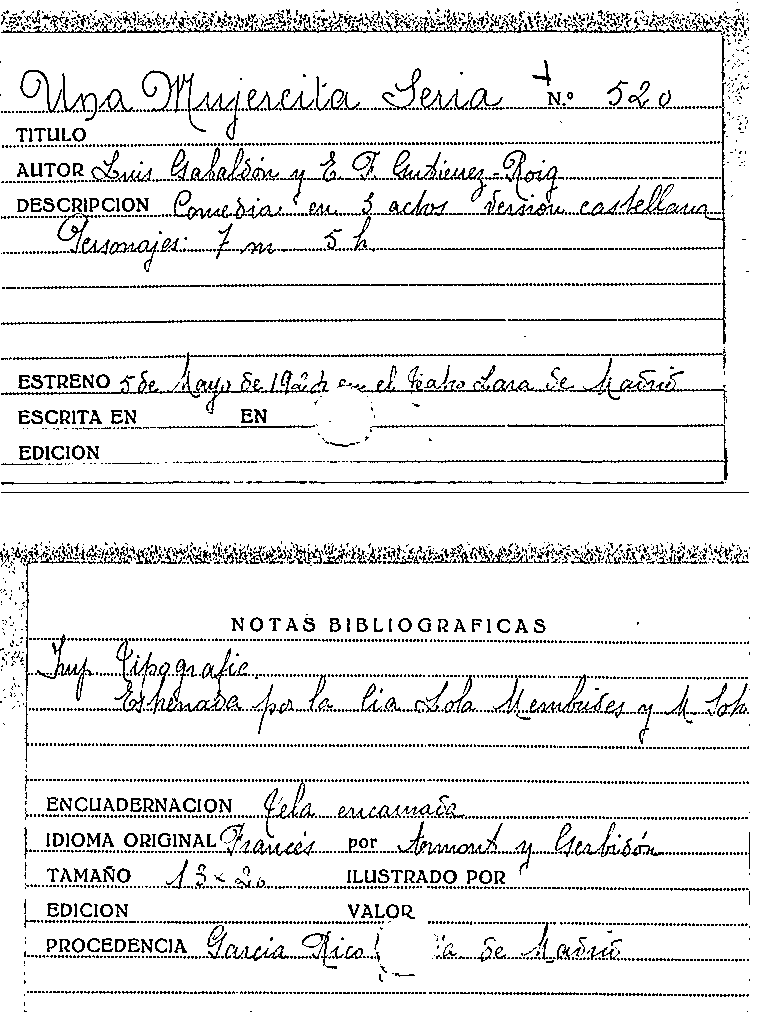 Una Mujercita Seria N.º 520
TITULO
AUTOR Luis Gabaldón y E. F. Gutierrez-Roig
DESCRIPCION Comedia en 3 actos Version castellana
Personajes: 7 m 5 h
ESTRENO 5 de Mayo de 192 en el teatro Lara de Madrid
ESCRITA EN EN
EDICION
NOTAS BIBLIOGRAFICAS
Imp Tipografic.
Estrenada por la Cia Lola Membrives y M
ENCUADERNACION Tela encarnada
IDIOMA ORIGINAL Francés por Armont y Gerbidón
TAMAÑO 13 x 20 ILUSTRADO POR
EDICION VALOR
PROCEDENCIA Garcia Rico de Madrid